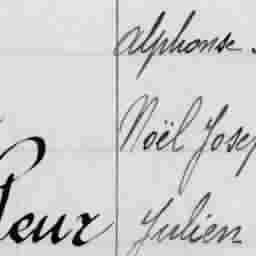 Alphonse
Noël Josep
leur Julien